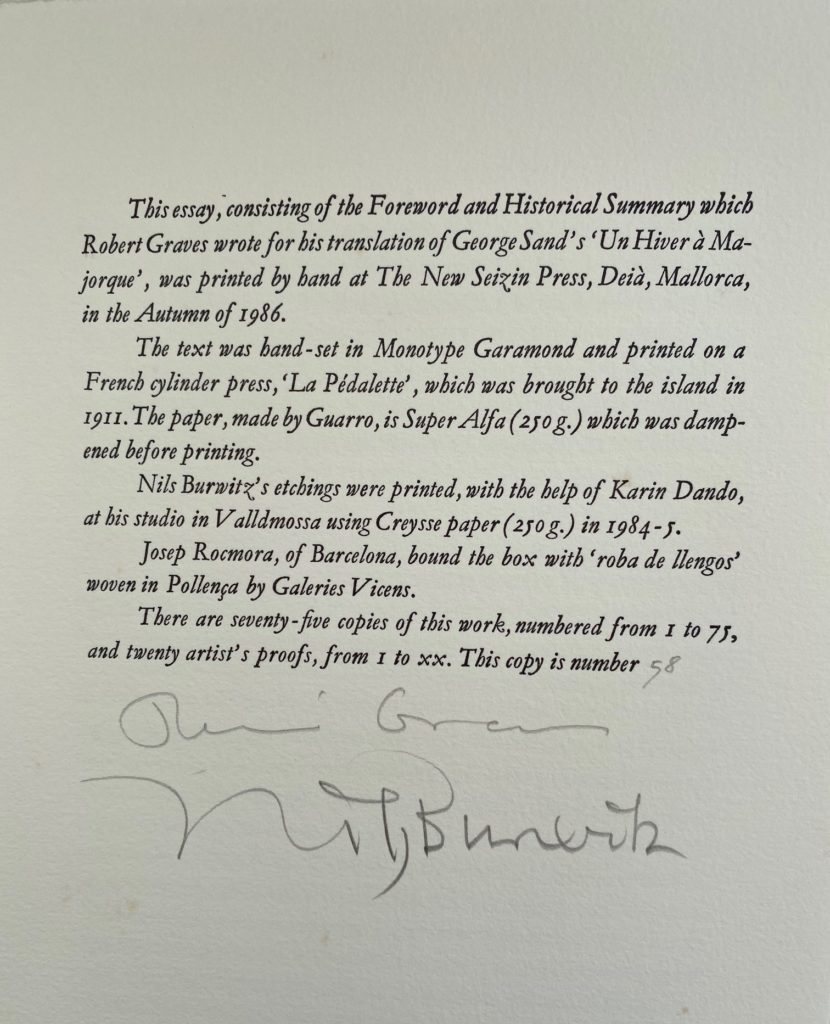 This essay, consisting of the Foreword and Historical Summary which
Robert Graves wrote for his translation of George Sand's 'Un Hiver à Ma-
jorque', was printed by hand at The New Seizin Press, Deià, Mallorca,
in the Autumn of 1986.
The text was hand-set in Monotype Garamond and printed on a
French cylinder press, 'La Pédalette', which was brought to the island in
1911. The paper, made by Guarro, is Super Alfa (250 g.) which was damp-
ened before printing.
Nils Burwitz's etchings were printed, with the help of Karin Dando,
at his studio in Valldmossa using Creysse paper (250 g.) in 1984-5.
Josep Rocmora, of Barcelona, bound the box with 'roba de llengos'
woven in Pollença by Galeries Vicens.
There are seventy-five copies of this work, numbered from 1 to 75,
and twenty artist's proofs, from 1 to xx. This copy is number 58
Nils Burwitz